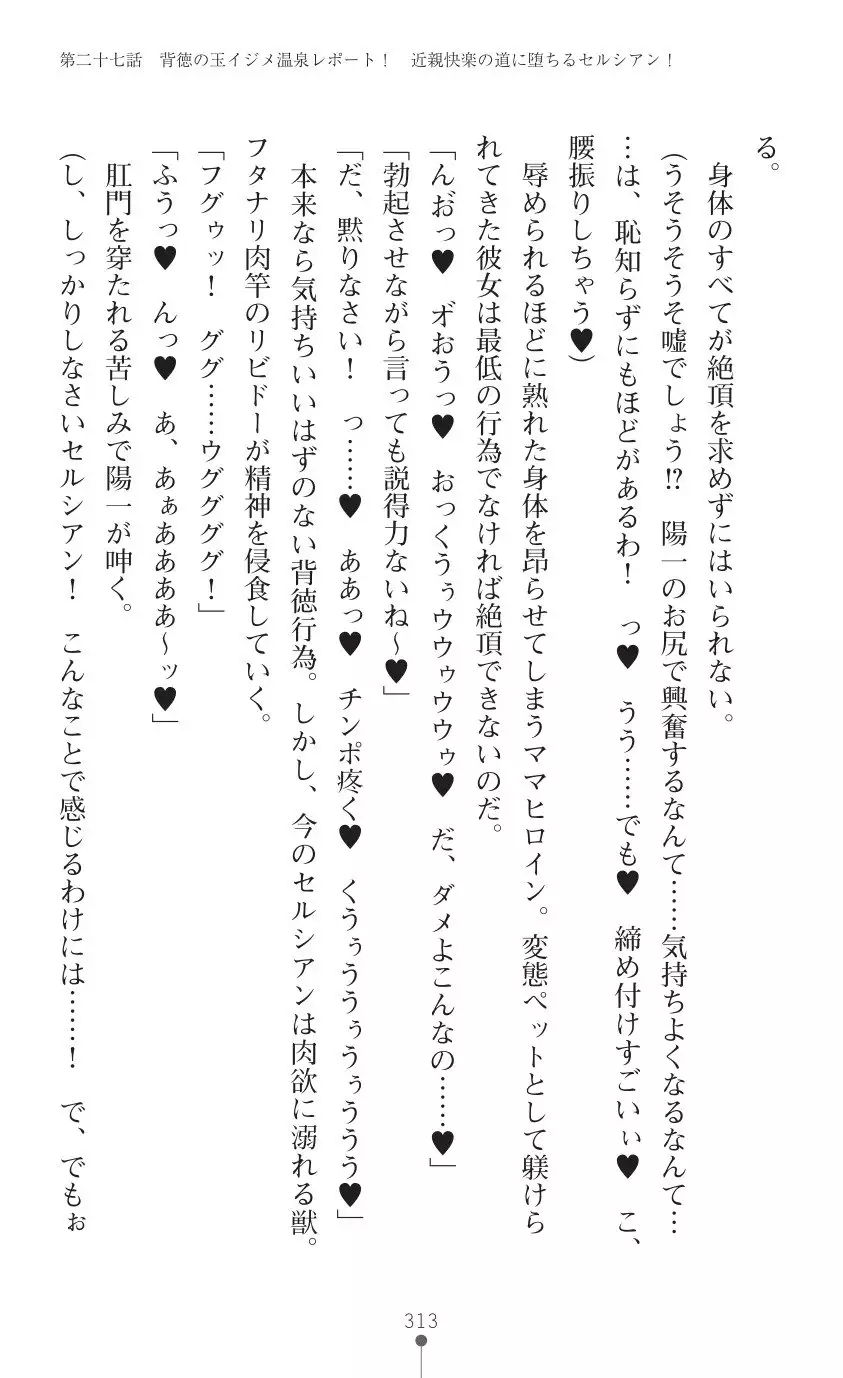 第二十七話　背徳の玉イジメ温泉レポート！　近親快楽の道に堕ちるセルシアン！
る。
　身体のすべてが絶頂を求めずにはいられない。
（うそうそうそ嘘でしょう!?　陽一のお尻で興奮するなんて……気持ちよくなるなんて…
…は、恥知らずにもほどがあるわ！　っ♥　うう……でも♥　締め付けすごいぃ♥　こ、
腰振りしちゃう♥）
　辱められるほどに熟れた身体を昂らせてしまうママヒロイン。変態ペットとして躾けら
れてきた彼女は最低の行為でなければ絶頂できないのだ。
「んお゛っ♥　オ゛おうっ♥　おっくうぅウウゥウウゥ♥　だ、ダメよこんなの……♥」
「勃起させながら言っても説得力ないね～♥」
「だ、黙りなさい！　っ……♥　ああっ♥　チンポ疼く♥　くうぅううぅうぅううう♥」
　本来なら気持ちいいはずのない背徳行為。しかし、今のセルシアンは肉欲に溺れる獣。
フタナリ肉竿のリビドーが精神を侵食していく。
「フグゥッ！　グググ……ウググググ！」
「ふうっ♥　んっ♥　あ、あぁああああ～ッ♥」
　肛門を穿たれる苦しみで陽一が呻く。
（し、しっかりしなさいセルシアン！　こんなことで感じるわけには……！　で、でもぉ
313